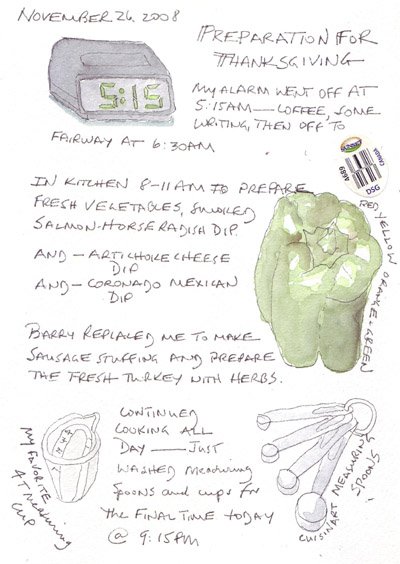 NOVEMBER 26, 2008
PREPARATION FOR
THANKSGIVING
MY ALARM WENT OFF AT
5:15AM — COFFEE, SOME
WRITING, THEN OFF TO
FAIRWAY AT 6:30AM
5:15
IN KITCHEN 8-11AM TO PREPARE
FRESH VEGETABLES, SMOKED
SALMON-HORSERADISH DIP.
AND - ARTICHOKE CHEESE
DIP
AND - CORONADO MEXICAN
DIP
4689
CANADA
RED YELLOW ORANGE + GREEN
BARRY REPLACED ME TO MAKE
SAUSAGE STUFFING AND PREPARE
THE FRESH TURKEY WITH HERBS.
MY FAVORITE
AT MEASURING
CUP
CONTINUED
COOKING ALL
DAY — JUST
WASHED MEASURING
SPOONS AND CUPS FOR
THE FINAL TIME TODAY
@ 9:15PM
CUISINART MEASURING
SPOONS